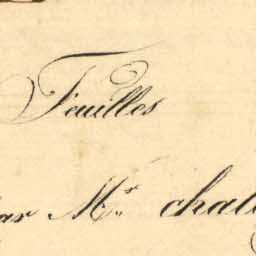 Feuilles
par Mr. chal